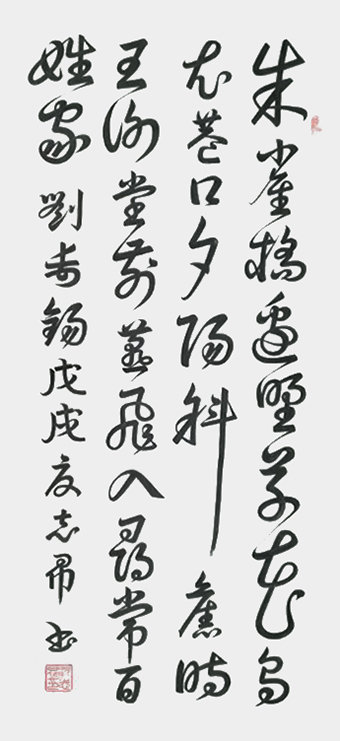 朱雀橋邊野草花烏
衣巷口夕陽斜舊時
王謝堂前燕飛入尋常百
姓家 劉禹錫 戊戌夏志书